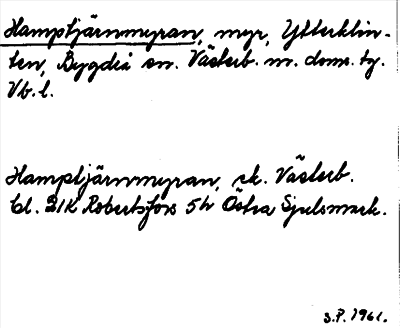 Hamptjärnmyran, myr, Ytterklin-
ten, Bygdeå sn. Västerb. m. doms. tg.
Vb. l.
Hamptjärnmyran, ek. Västerb.
bl. 21K Robertsfors 5h Östra Sjulsmark.
S.P. 1961.